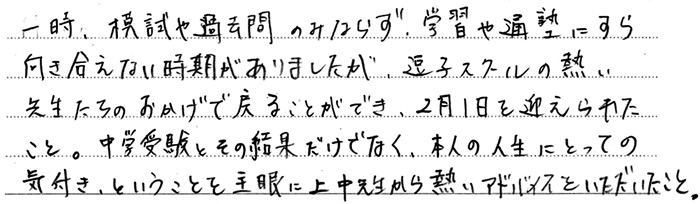 一時、模試や過去問のみならず、学習や通塾にすら
向き合えない時期がありましたが、逗子スクールの熱い
先生たちのおかげで戻ることができ、2月1日を迎えられた
こと。中学受験とその結果だけでなく、本人の人生にとっての
気付き、ということを主眼に上中先生から熱いアドバイスをいただいたこと。